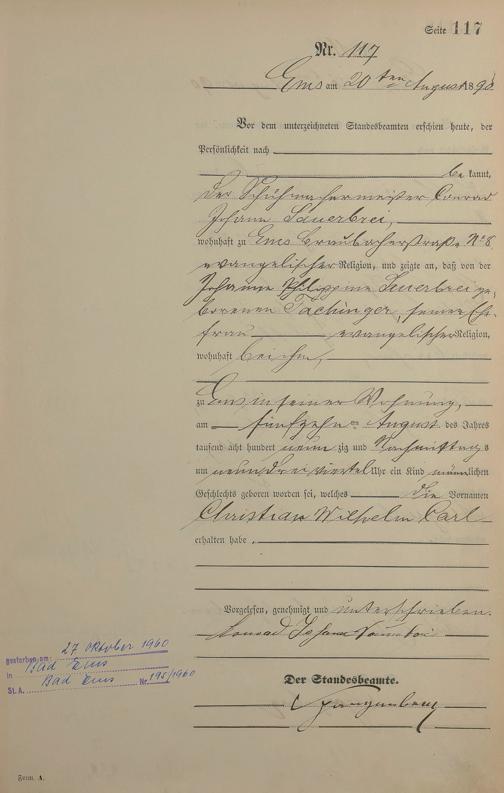 Seite 117
Nr. 117
Ems am 20ten August 1890
Vor dem unterzeichneten Standesbeamten erschien heute, der
Persönlichkeit nach
be kannt,
der Schuhmachermeister Conrad
Johann Sauerbrei,
wohnhaft zu Ems Braubacherstraße No 8
evangelischer Religion, und zeigte an, daß von der
Johanne Philippine Sauerbrei ge-
borenen Tachinger, seiner Ehe-
frau evangelischer Religion,
wohnhaft bei ihm,
zu Ems in seiner Wohnung,
am fünfzehn August des Jahres
tausend acht hundert neun zig und Nachmittag s
um neun drei viertel Uhr ein Kind männlichen
Geschlechts geboren worden sei, welches die Vornamen
Christian Wilhelm Carl
erhalten habe.
Vorgelesen, genehmigt und unterschrieben.
Conrad Johann Sauerbrei
gestorben am: 27 Oktober 1960
in Bad Ems
St. A. Bad Ems Nr. 195/1960
Der Standesbeamte.
Form. A.